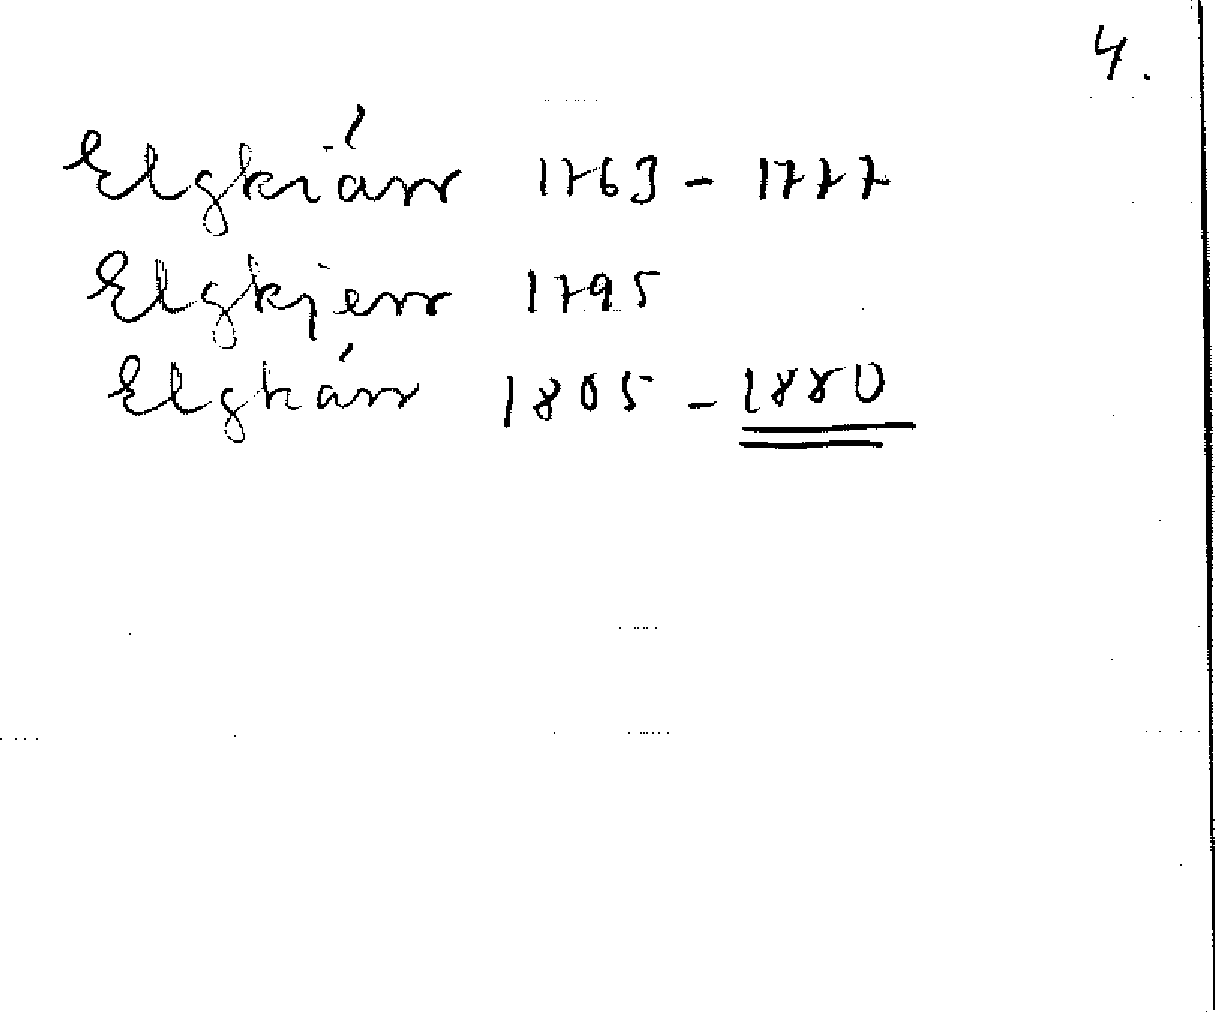 4.
Elgkiärr 1763 - 1777
Elgkjerr 1795
Elgkärr 1805 - 1880